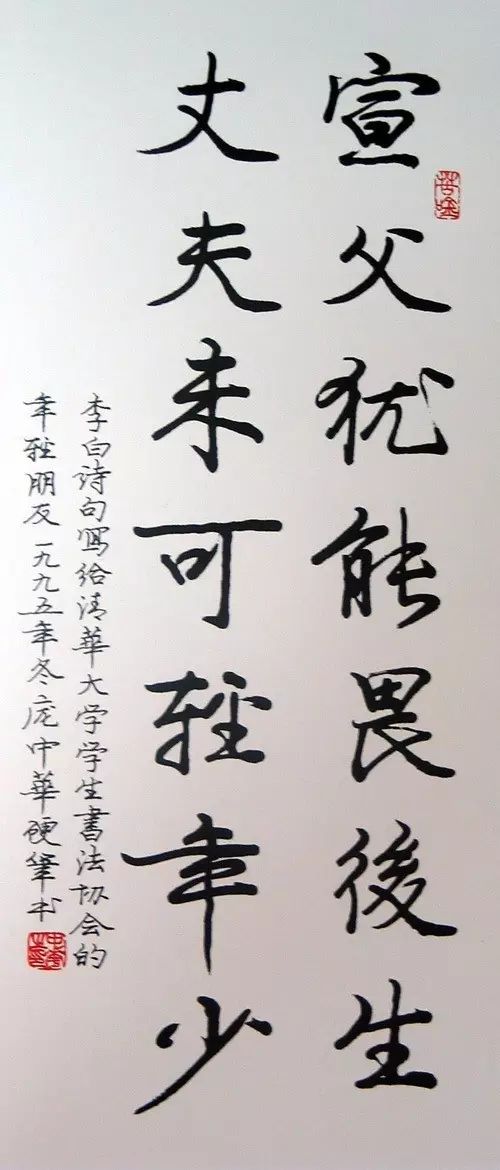 宣父犹能畏後生
丈夫未可轻年少
李白诗句寫给清華大学学生書法协会的
年轻朋友一九九五年冬庞中華硬筆书